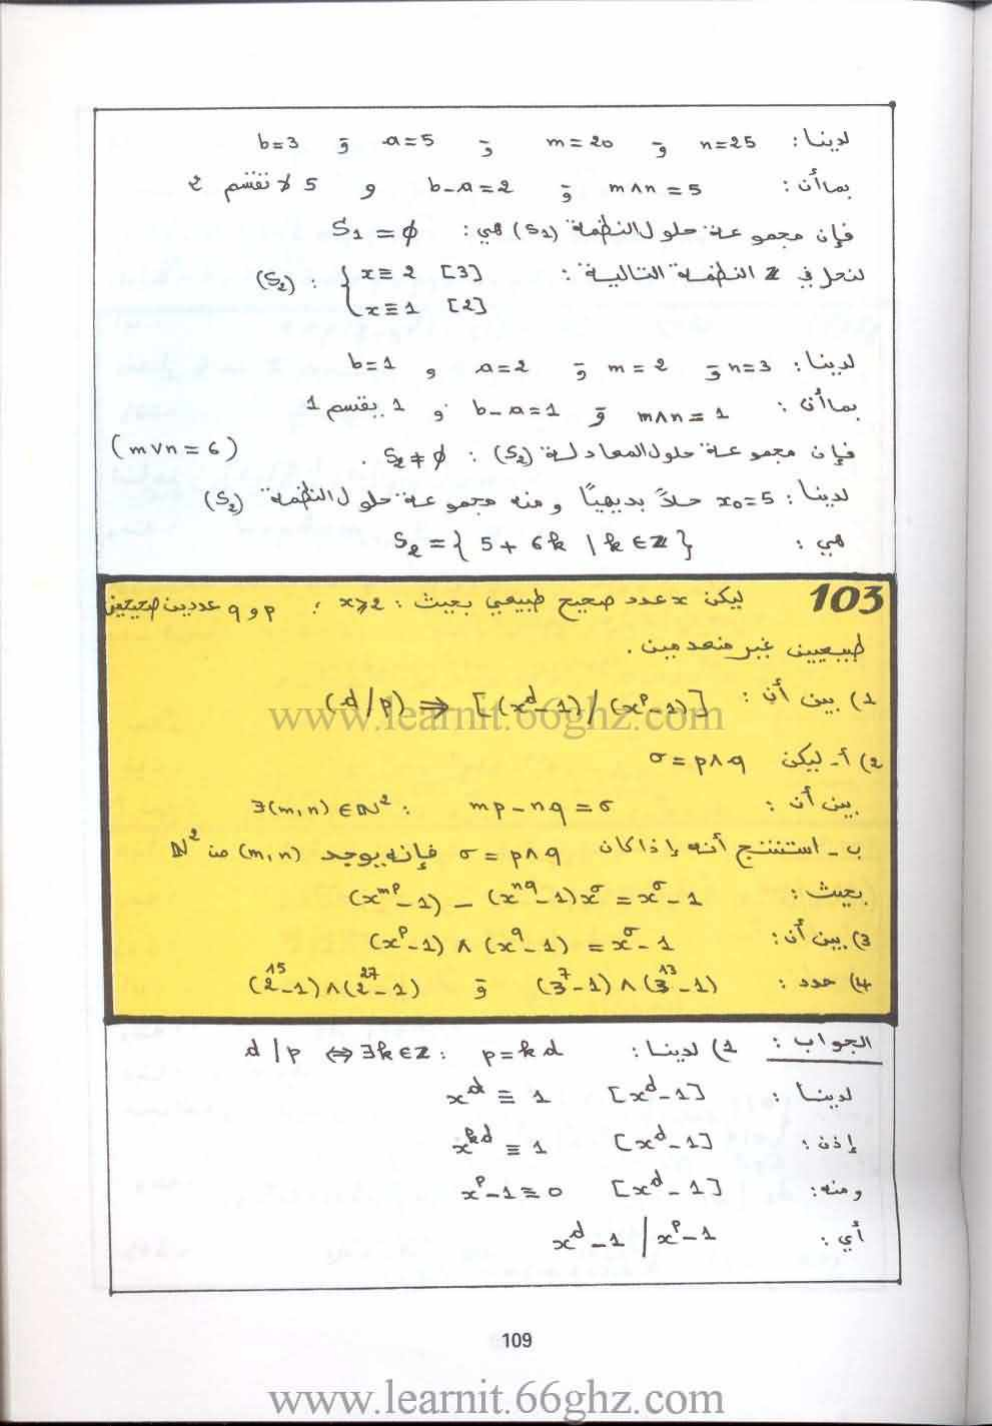 لدينا : n=25 و m=20 و a=5 و b=3
بما أن : m∧n=5 و b-a=2 و 5 لا تقسم 2
فإن مجموعة حلول النظمة (S₁) هي : S₁=∅
لنحل في ℤ النظمة التالية : (S₂) : { x≡2 [3]
x≡1 [2]
لدينا : n=3 و m=2 و a=2 و b=1
بما أن : m∧n=1 و b-a=1 و 1 يقسم 1
فإن مجموعة حلول المعادلة (S₂) : S₂≠∅ . (m∨n=6)
لدينا : x₀=5 حلاً بديهياً ومنه مجموعة حلول النظمة (S₂)
هي : S₂={5+6k | k∈ℤ}
103 ليكن x عدد صحيح طبيعي بحيث : x≥2 ; p و q عددين صحيحين
طبيعيين غير منعدمين .
1) بين أن : (d/p) ⇒ [(x^d-1)/(x^p-1)]
2) أ- ليكن σ=p∧q
بين أن : ∃(m,n)∈ℕ² : mp-nq=σ
ب- استنتج أنه إذا كان σ=p∧q فإنه يوجد (m,n) من ℕ²
بحيث : (x^mp-1)-(x^nq-1)x^σ=x^σ-1
3) بين أن : (x^p-1)∧(x^q-1)=x^σ-1
4) حدد : (3^7-1)∧(3^13-1) و (2^15-1)∧(2^27-1)
الجواب : 1) لدينا : d|p ⇔ ∃k∈ℤ : p=kd
لدينا : x^d≡1 [x^d-1]
إذن : x^kd≡1 [x^d-1]
ومنه : x^p-1≡0 [x^d-1]
أي : x^d-1 | x^p-1
109
www.learnit.66ghz.com
www.learnit.66ghz.com